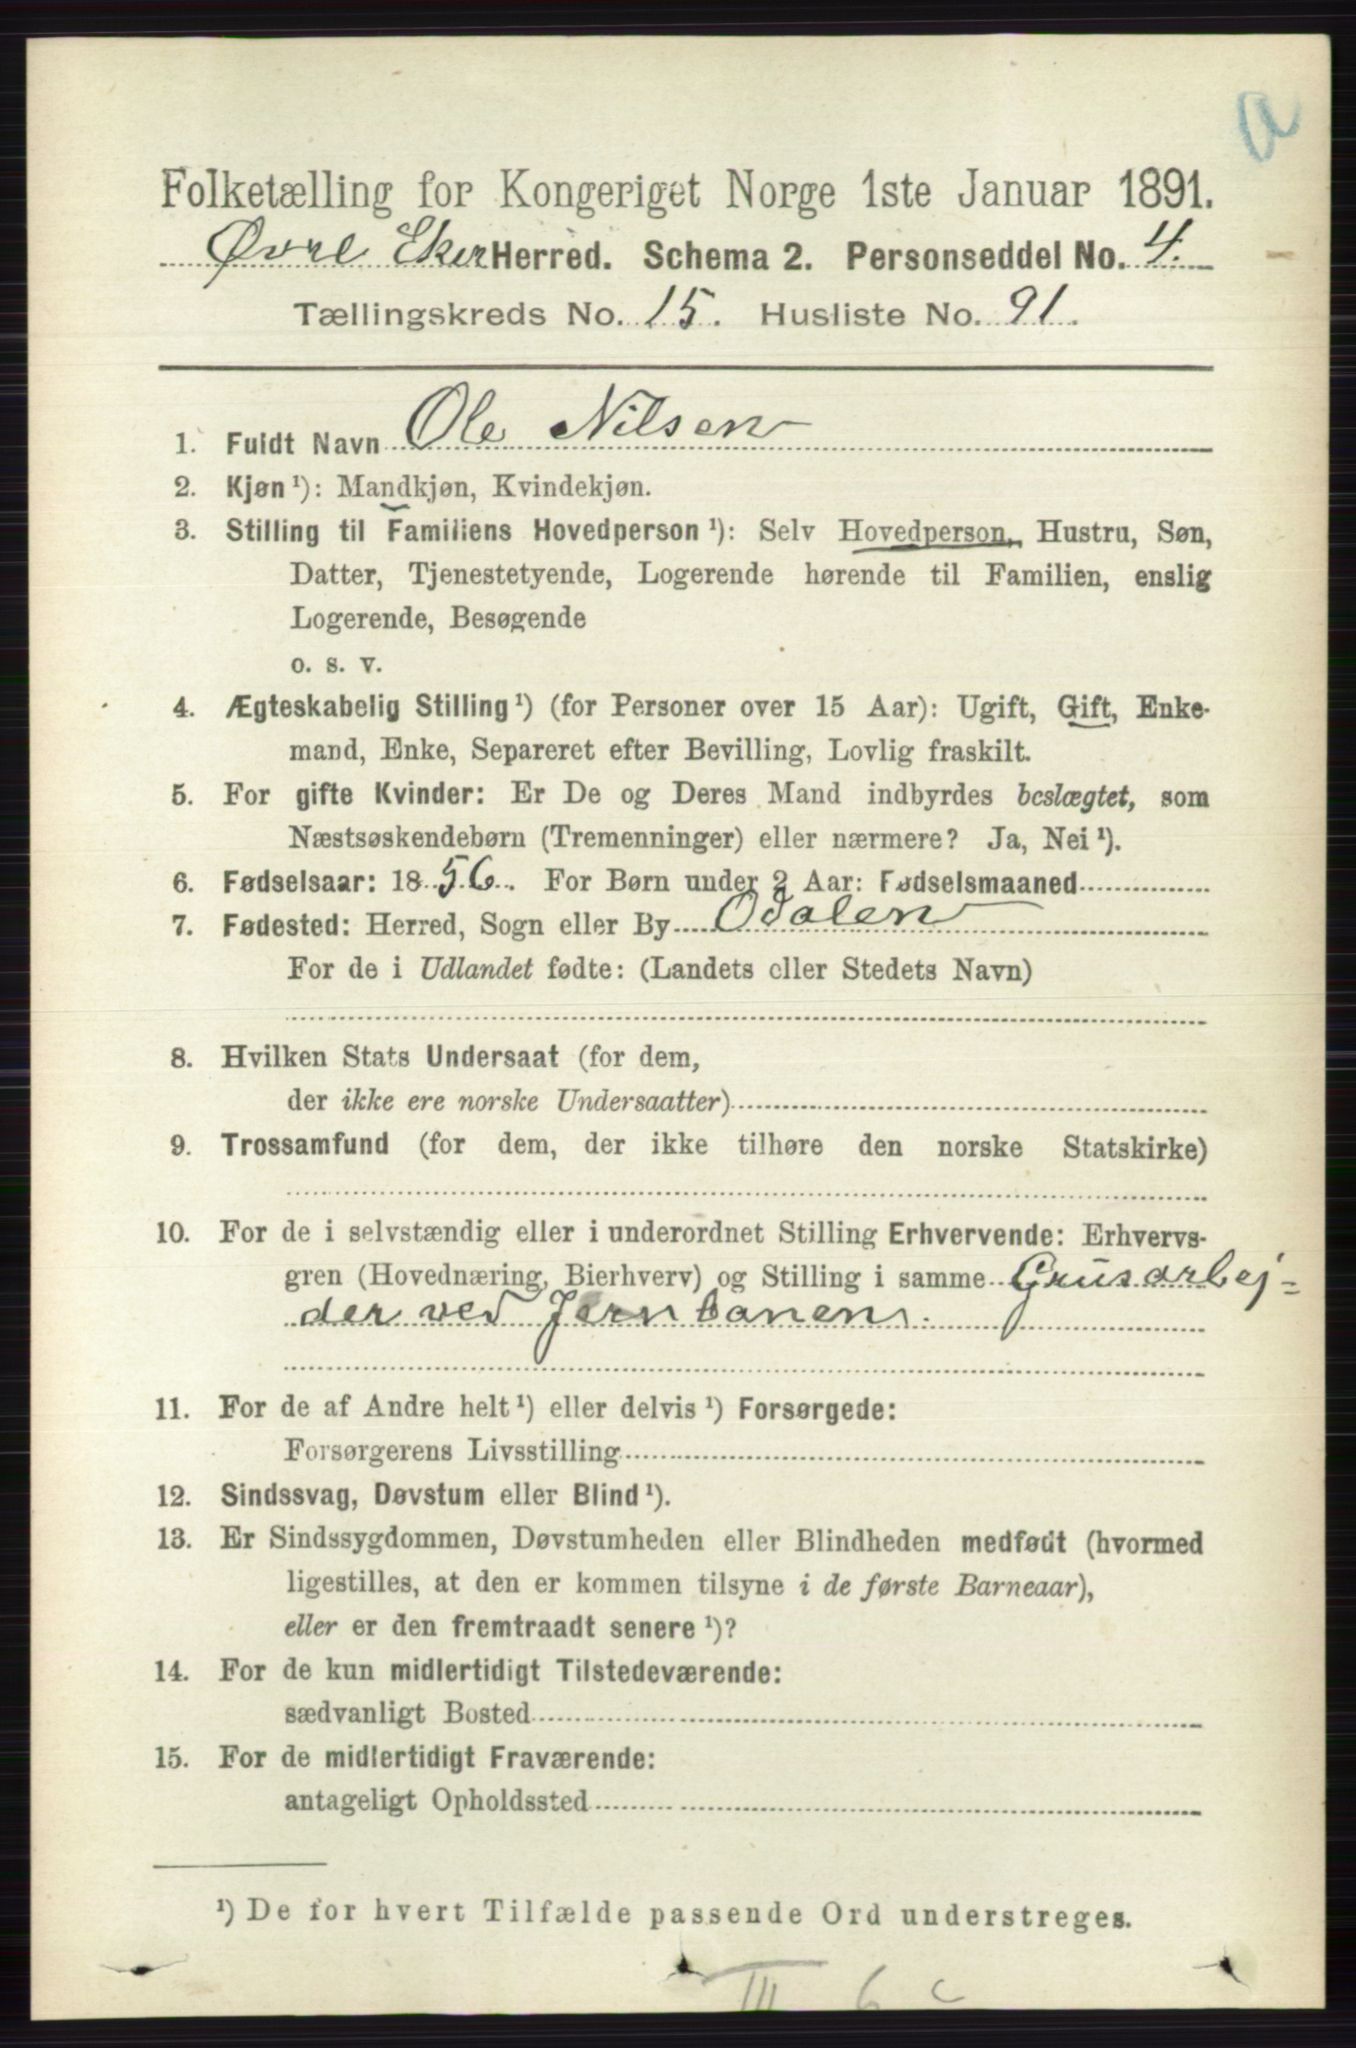 a
Folketælling for Kongeriget Norge 1ste Januar 1891.
Øvre Eker Herred. Schema 2. Personseddel No. 4.
Tællingskreds No. 15. Husliste No. 91.
1. Fuldt Navn Ole Nilsen
2. Kjøn ¹): Mandkjøn, Kvindekjøn.
3. Stilling til Familiens Hovedperson ¹): Selv Hovedperson, Hustru, Søn,
Datter, Tjenestetyende, Logerende hørende til Familien, enslig
Logerende, Besøgende
o. s. v.
4. Ægteskabelig Stilling ¹) (for Personer over 15 Aar): Ugift, Gift, Enke-
mand, Enke, Separeret efter Bevilling, Lovlig fraskilt.
5. For gifte Kvinder: Er De og Deres Mand indbyrdes beslægtet, som
Næstsøskendebørn (Tremenninger) eller nærmere? Ja, Nei ¹).
6. Fødselsaar: 1856. For Børn under 2 Aar: Fødselsmaaned
7. Fødested: Herred, Sogn eller By Odalen
For de i Udlandet fødte: (Landets eller Stedets Navn)
8. Hvilken Stats Undersaat (for dem,
der ikke ere norske Undersaatter)
9. Trossamfund (for dem, der ikke tilhøre den norske Statskirke)
10. For de i selvstændig eller i underordnet Stilling Erhvervende: Erhvervs-
gren (Hovednæring, Bierhverv) og Stilling i samme Grusarbej-
der ved Jernbanen.
11. For de af Andre helt ¹) eller delvis ¹) Forsørgede:
Forsørgerens Livsstilling
12. Sindssvag, Døvstum eller Blind ¹).
13. Er Sindssygdommen, Døvstumheden eller Blindheden medfødt (hvormed
ligestilles, at den er kommen tilsyne i de første Barneaar),
eller er den fremtraadt senere ¹)?
14. For de kun midlertidigt Tilstedeværende:
sædvanligt Bosted
15. For de midlertidigt Fraværende:
antageligt Opholdssted
¹) De for hvert Tilfælde passende Ord understreges.
III 6 c